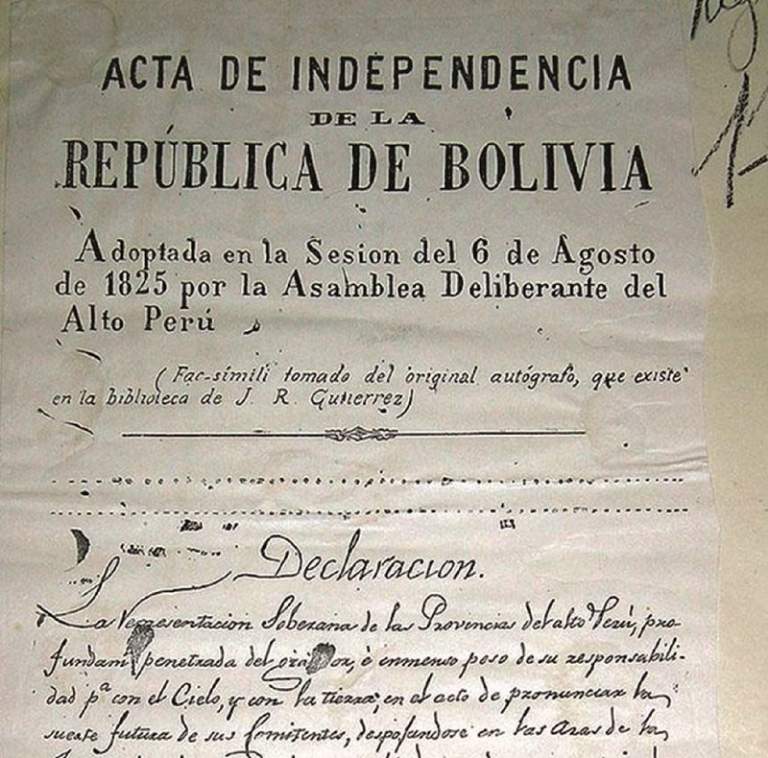 ACTA DE INDEPENDENCIA
DE LA
REPÚBLICA DE BOLIVIA
Adoptada en la Sesion del 6 de Agosto
de 1825 por la Asamblea Deliberante del
Alto Perú
(Fac-símili tomado del original autógrafo, que existe
en la biblioteca de J. R. Gutierrez)
Declaracion.
La Representacion Soberana de las Provincias del alto Perú, pro-
fundam penetrada del é inmenso peso de su responsabili-
dad pª con el Cielo, y con la tierra, en el acto de pronunciar la
suerte futura de sus Comitentes, despojandose en las aras de la